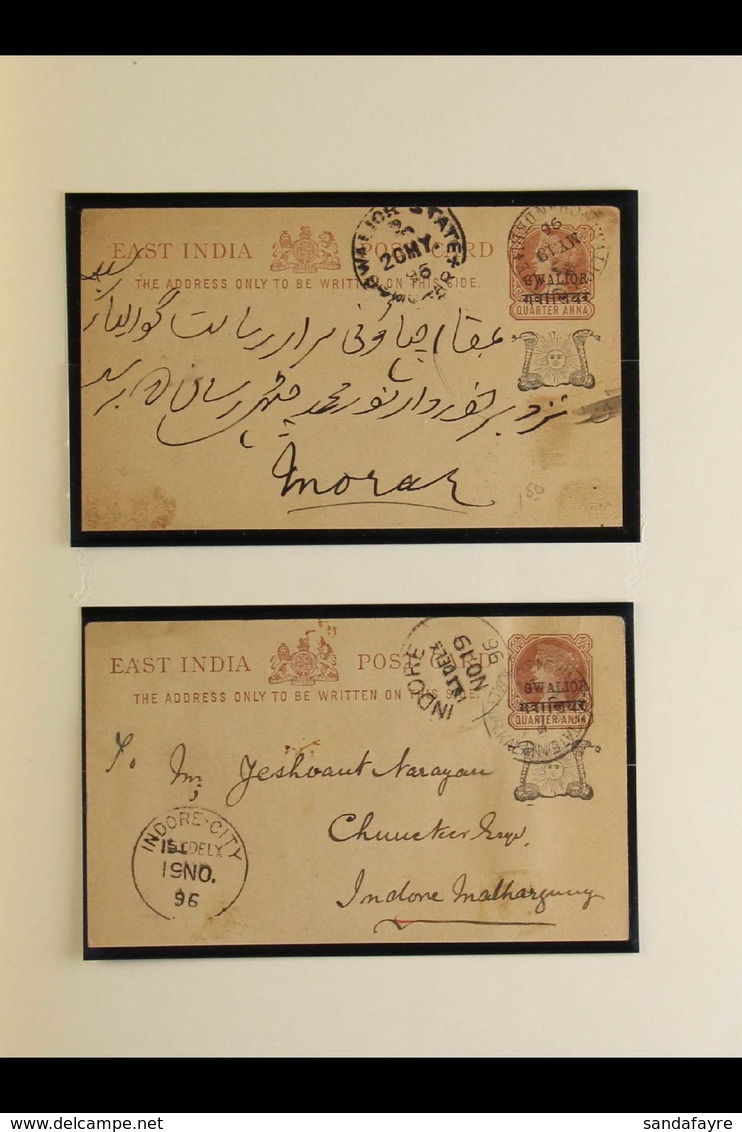 EAST INDIA POST CARD
THE ADDRESS ONLY TO BE WRITTEN ON THIS SIDE.
GWALIOR STATE
20 MY.
96
MORAR
96
GWALIOR
गवालियर
QUARTER ANNA
بمقام چھاونی مرار ریاست گوالیار
نزد برخوردار نور محمد
Morar
1 50
EAST INDIA POST CARD
THE ADDRESS ONLY TO BE WRITTEN ON THIS SIDE.
INDORE
1ST DELY
NO 19
96
GWALIOR
गवालियर
QUARTER ANNA
To Mr Jeshvant Narayan
Chuucker Esqr.
Indore Malhargunj
INDORE-CITY
1ST DELY
19 NO.
96
delcampe.net
sandafayre